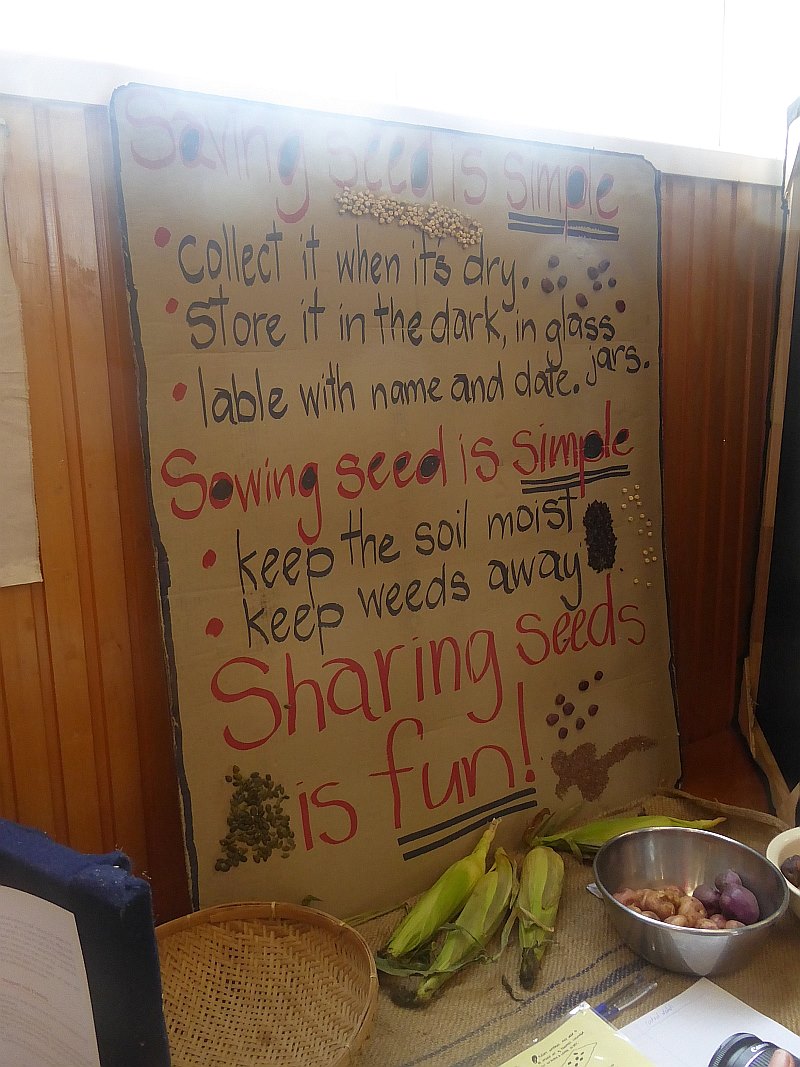 Saving seed is simple
• collect it when it's dry.
• Store it in the dark, in glass
jars.
• lable with name and date.
Sowing seed is simple
• keep the soil moist
• keep weeds away
Sharing seeds
is fun!
Canon